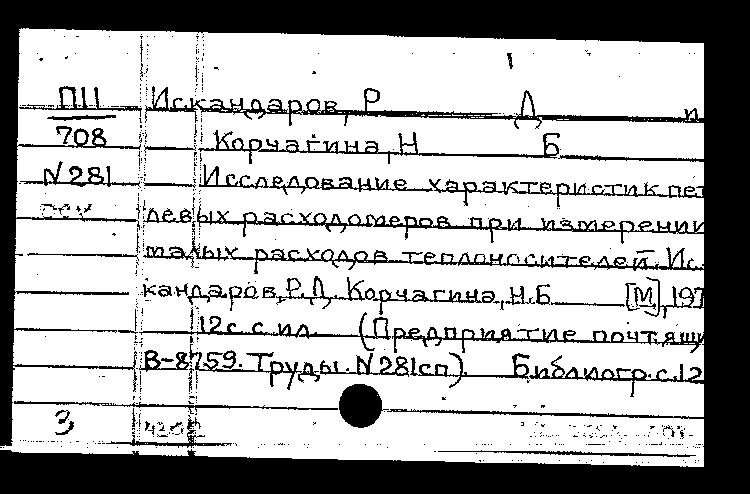 П11 Искандаров, Р Д п
708 Корчагина, Н Б
N 281 Исследование характеристик пет
левых расходомеров при измерении
малых расходов теплоносителей. Ис.
кандаров, Р.Д. Корчагина, Н.Б [М], 197
12с. с ил. (Предприятие почт.ящи
В-8759. Труды. N 281сп). Библиогр.с.12
3